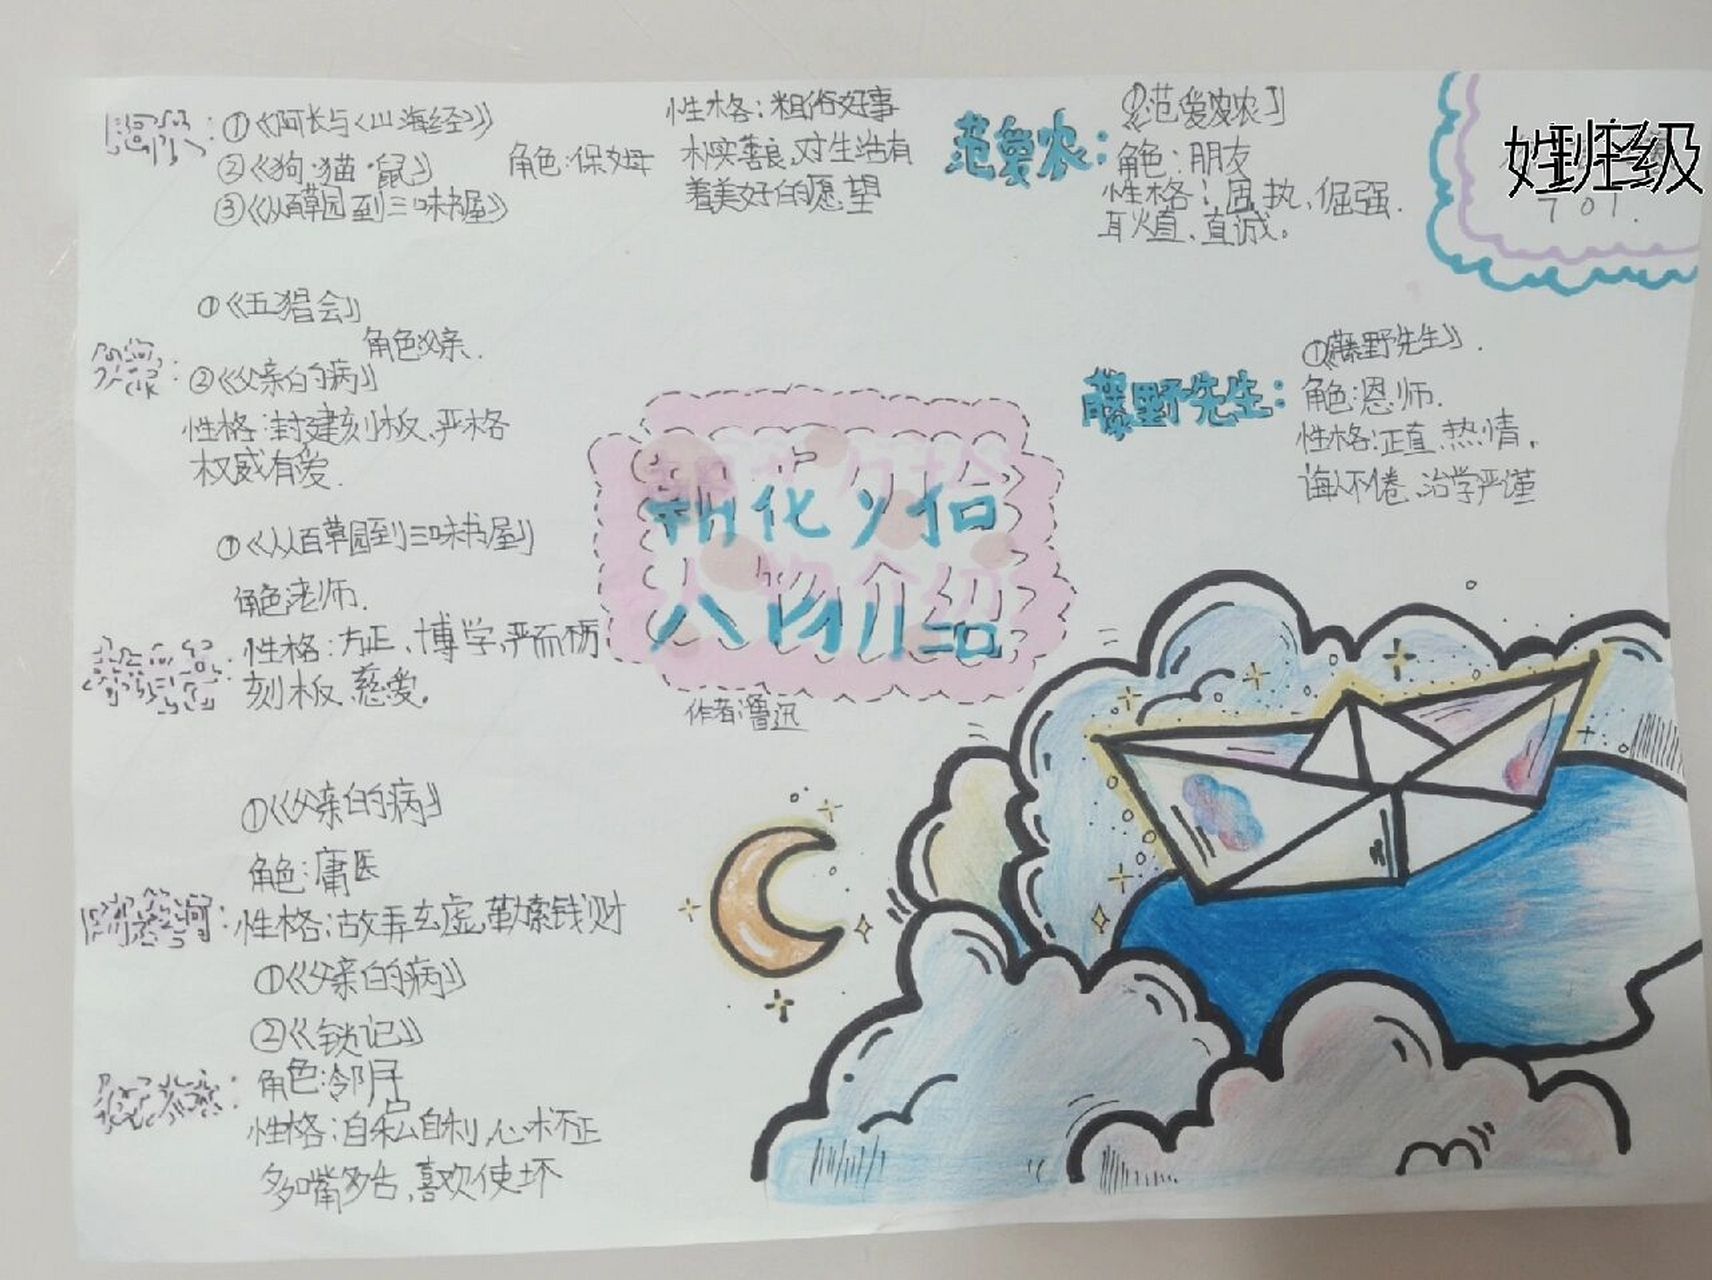 ①《阿长与《山海经》》
②《狗·猫·鼠》
③《从百草园到三味书屋》
角色:保姆
性格:粗俗好事
朴实善良,对生活有
着美好的愿望
范爱农:
①《范爱农》
角色:朋友
性格:固执、倔强.
耿直、直诚。
姓班名级
701.
①《五猖会》
角色:父亲.
②《父亲的病》
性格:封建刻板、严格
权威有爱.
藤野先生:
①《藤野先生》.
角色:恩师.
性格:正直.热情,
诲人不倦、治学严谨
朝花夕拾
人物介绍
作者:鲁迅
①《从百草园到三味书屋》
角色:老师.
性格:方正、博学,严而
刻板、慈爱。
①《父亲的病》
角色:庸医
性格:故弄玄虚,勒索钱财
①《父亲的病》
②《锁记》
角色:邻居
性格:自私自利,心术不正
多嘴多舌,喜欢使坏